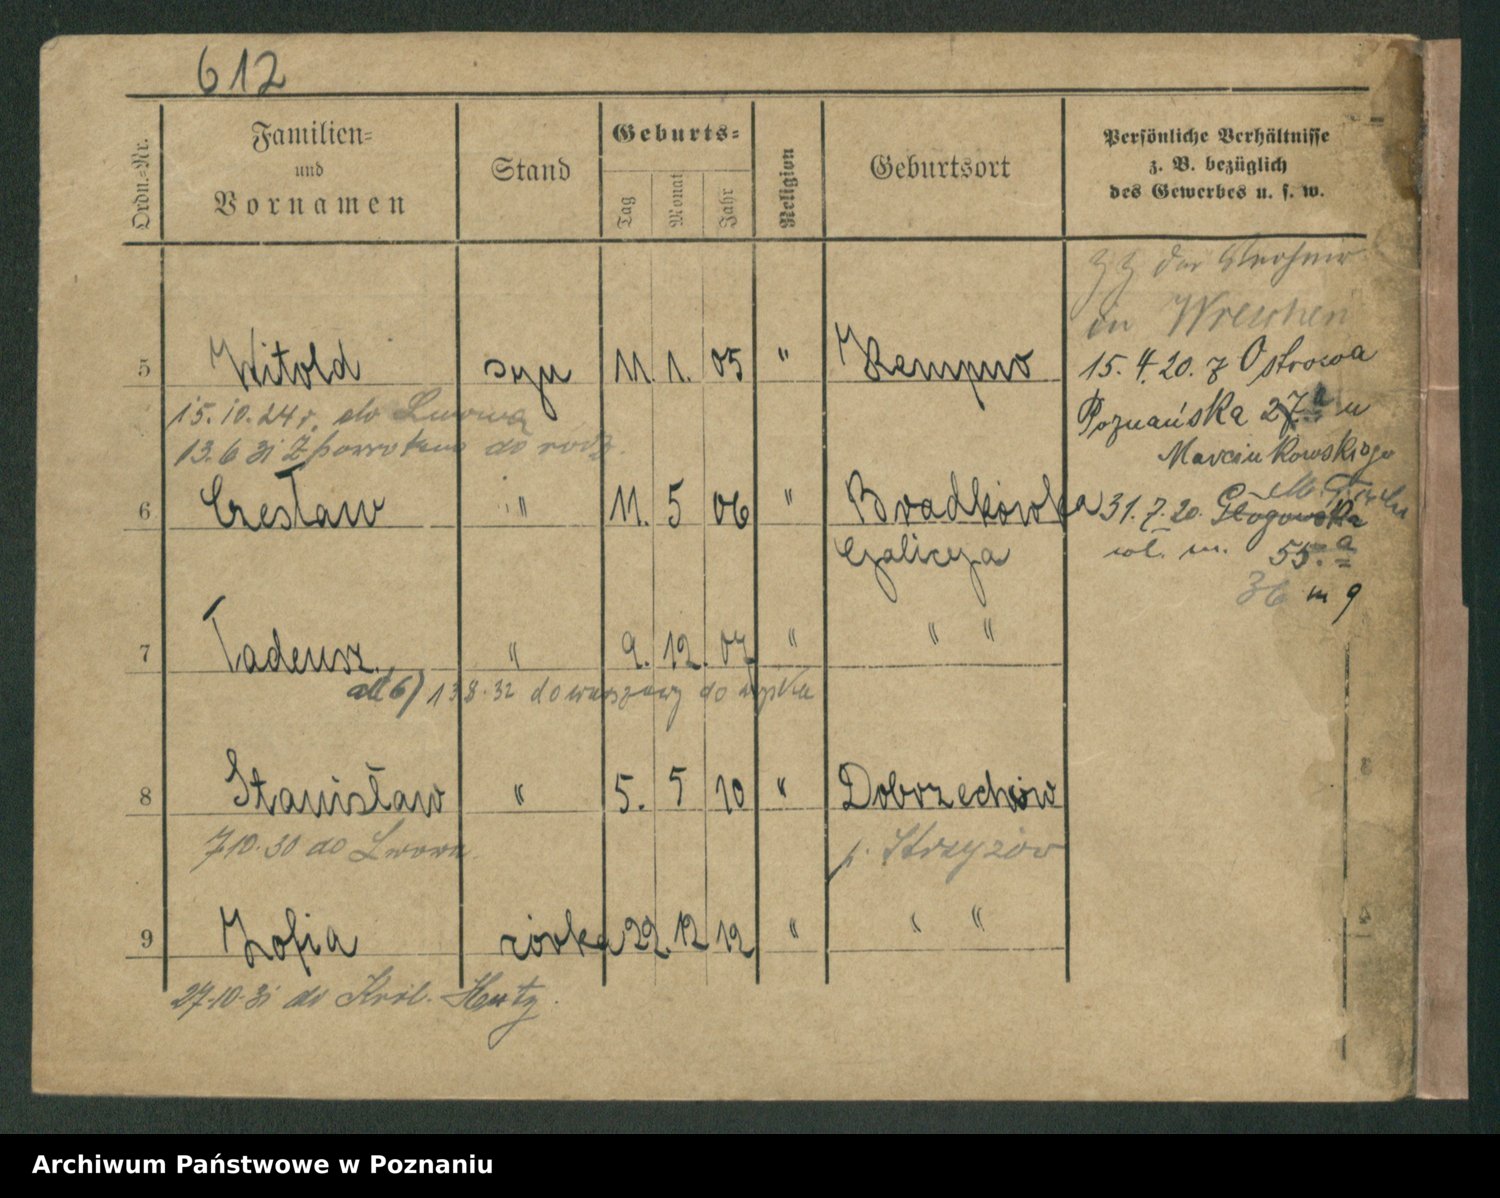 612
Ordn.=Nr.
Familien=
und
Vornamen
Stand
Geburts=
Tag
Monat
Jahr
Religion
Geburtsort
Persönliche Verhältnisse
z. B. bezüglich
des Gewerbes u. s. w.
in Wreschen
5 Witold syn 11. 1. 05 " Kempno
15. 4. 20. z Ostrowa
15.10.24 r. do Lwowa
Poznańska 27a
13.6 31 z powrotem do rodz.
Marcinkowskiego
6 Czesław " 11. 5 06 " Bradkówka
31. 7. 20. Głogowska
Galicya
55.a
36 m 9
7 Tadeusz " 9. 12. 07 " " "
ad 6) 13 8. 32 do Warszawy do
8 Stanisław " 5. 5 10 " Dobrzechów
7 10. 30 do Lwowa.
p. Strzyżów
9 Zofia córka 22. 12 12 " " "
27.10.31 do Król. Huty.
Archiwum Państwowe w Poznaniu